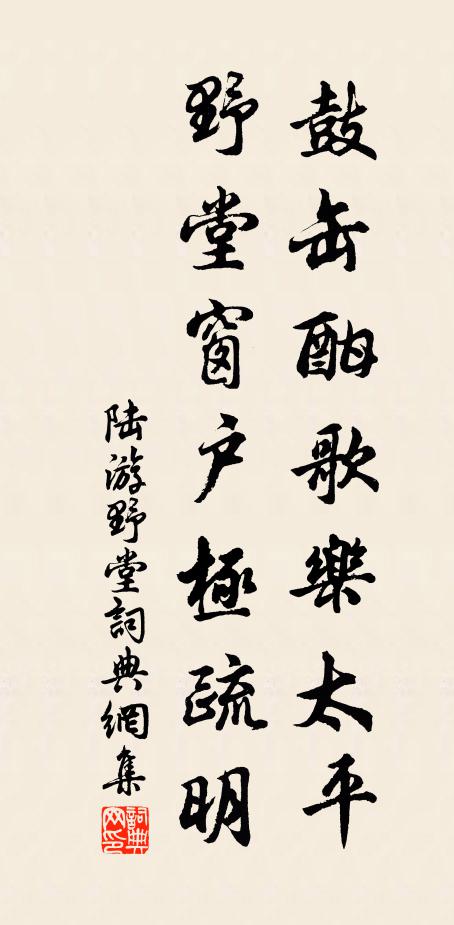 鼓缶酣歌樂太平
野堂窗户極疏明
陆游野堂詞典網集
詞典网印